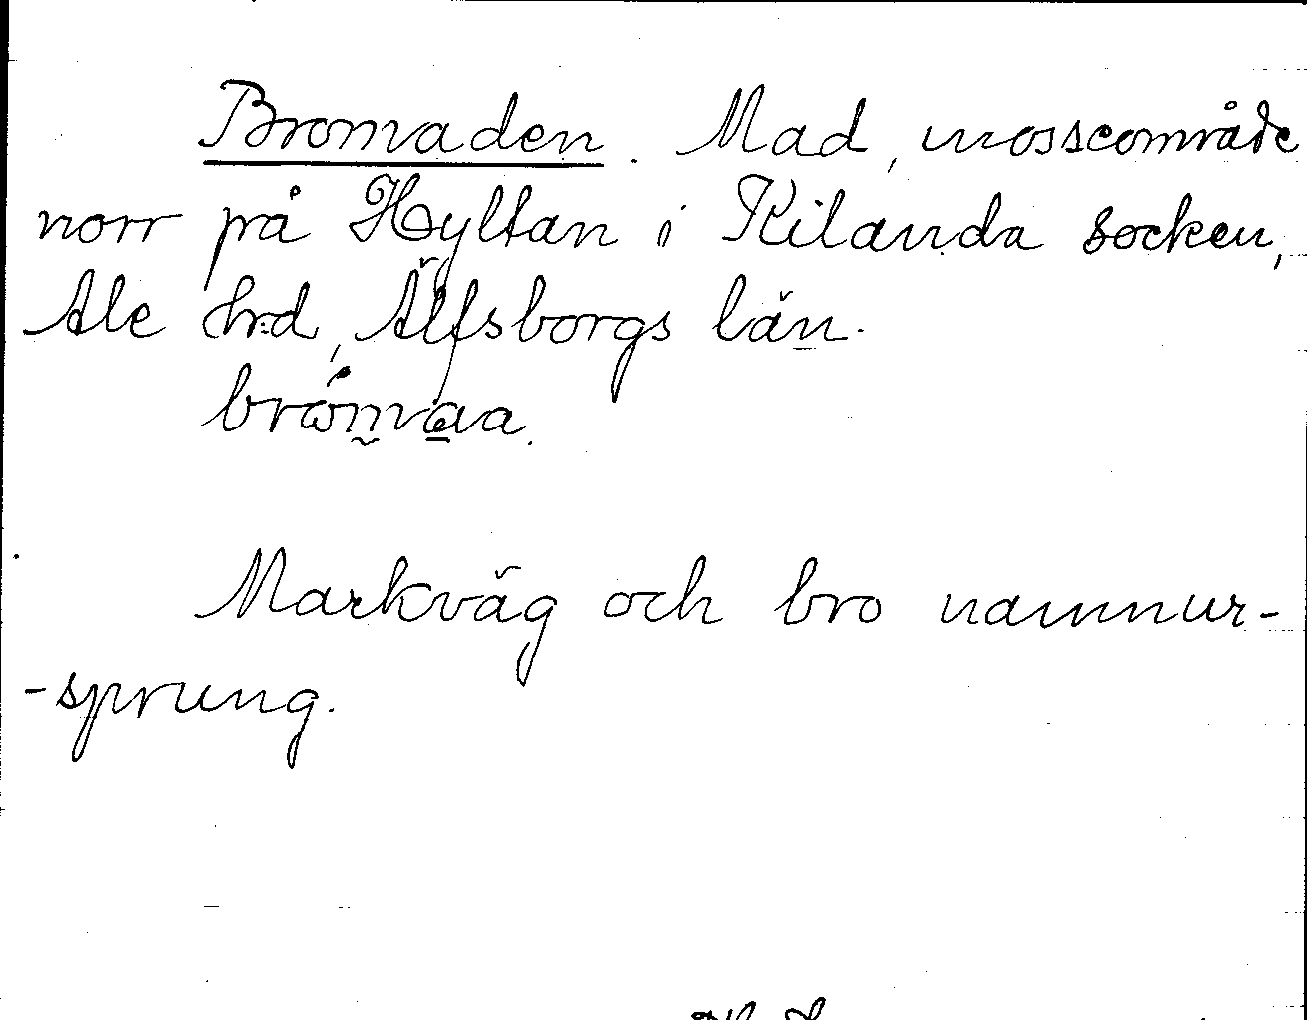 Bromaden. Mad, mosseområde
norr på Hyltan i Kilanda socken,
Ale hrd, Älfsborgs län.
Markväg och bro namnur-
-sprung.